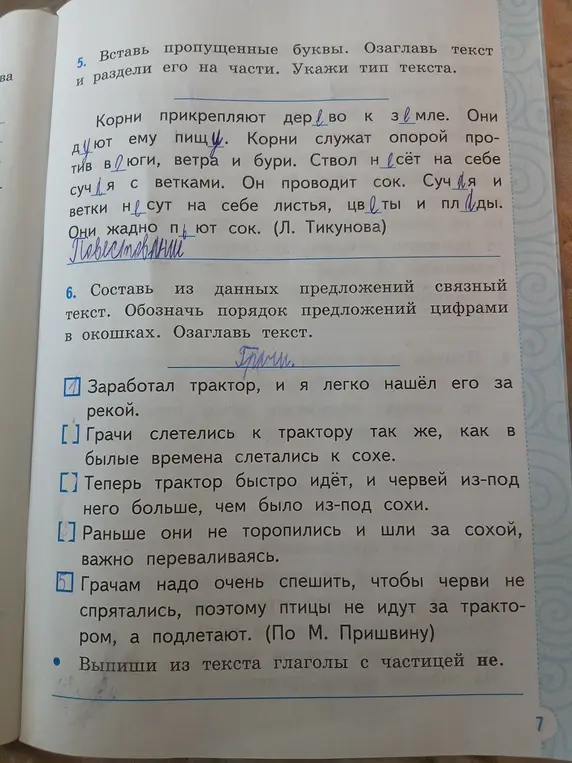 ва
5. Вставь пропущенные буквы. Озаглавь текст
и раздели его на части. Укажи тип текста.
Корни прикрепляют дерево к земле. Они
дуют ему пищу. Корни служат опорой про-
тив в юги, ветра и бури. Ствол несёт на себе
суч я с ветками. Он проводит сок. Суч я и
ветки несут на себе листья, цветы и пл ды.
Они жадно пьют сок. (Л. Тикунова)
6. Составь из данных предложений связный
текст. Обозначь порядок предложений цифрами
в окошках. Озаглавь текст.
Грачи.
1 Заработал трактор, и я легко нашёл его за
рекой.
[ ] Грачи слетелись к трактору так же, как в
былые времена слетались к сохе.
[ ] Теперь трактор быстро идёт, и червей из-под
него больше, чем было из-под сохи.
[ ] Раньше они не торопились и шли за сохой,
важно переваливаясь.
5 Грачам надо очень спешить, чтобы черви не
спрятались, поэтому птицы не идут за тракто-
ром, а подлетают. (По М. Пришвину)
• Выпиши из текста глаголы с частицей не.
7